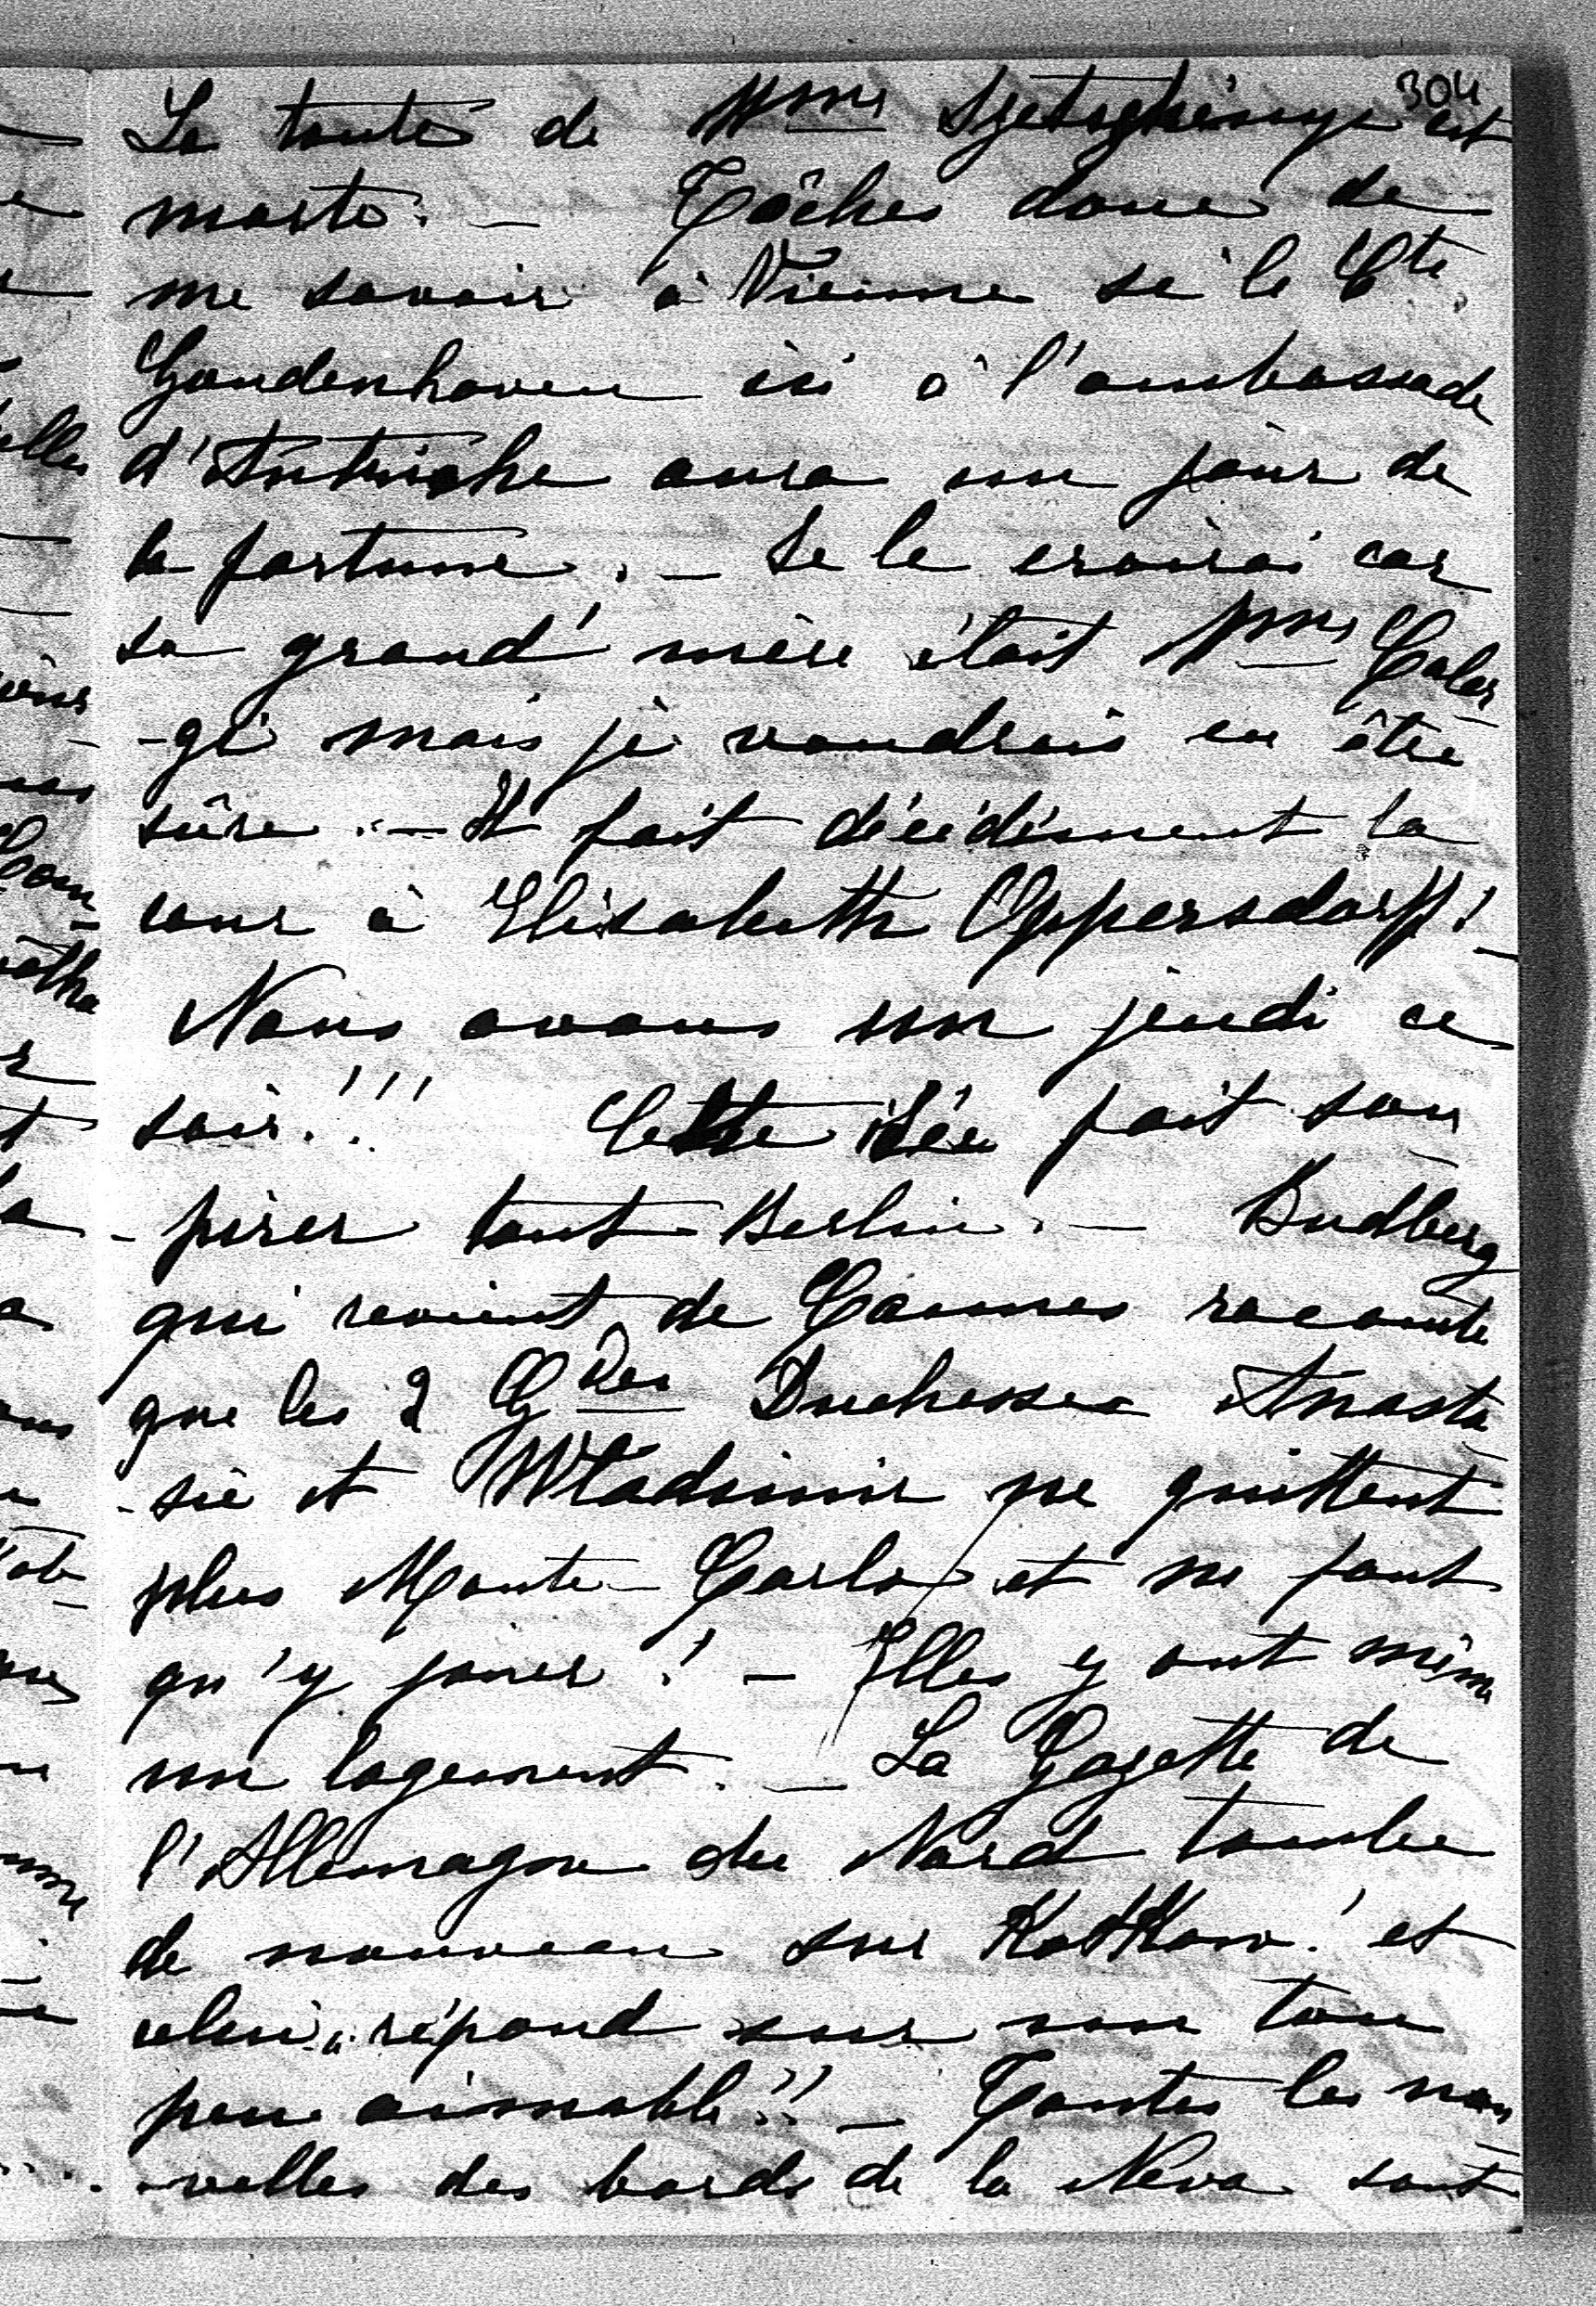 304
La tante de Mme Szetschényi est
morte. — Tâchez donc de
me savoir à Vienne si le Cte
Coudenhoven ici à l'ambassade
d'Autriche aura un jour de
la fortune. — Je le croirai car
sa grand'mère était Mme Caler
-gi mais je voudrais en être
sûre. — Il fait décidément la
cour à Elisabeth Oppersdorff!—
Nous avons un jeudi ce
soir!!! Cette idée fait sou
-pirer tout Berlin. — Budberg
qui revient de Cannes raconte
que les 2 Gdes Duchesses Anasta
-sie et Wladimir ne quittent
plus Monte-Carlo et ne font
qu'y jouer! — Elles y ont même
un logement. — La Gazette de
l'Allemagne du Nord tombe
de nouveau sur Katkow! et
celui-ci répond sur un ton
peu aimable!! — Toutes les nou
-velles des bords de la Neva sont